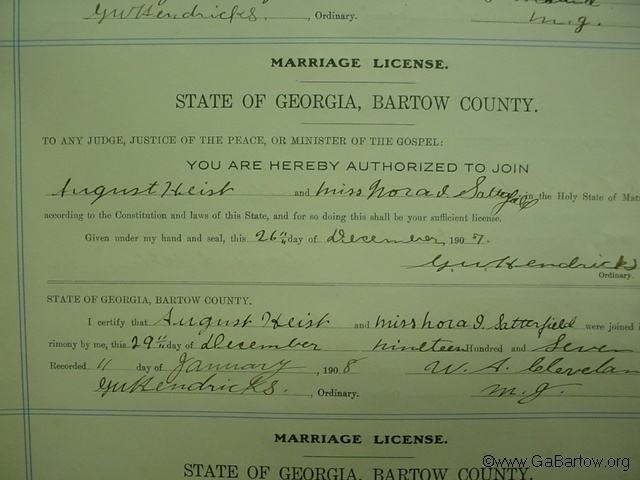 GW Hendricks. , Ordinary.
m.g.
MARRIAGE LICENSE.
STATE OF GEORGIA, BARTOW COUNTY.
TO ANY JUDGE, JUSTICE OF THE PEACE, OR MINISTER OF THE GOSPEL:
YOU ARE HEREBY AUTHORIZED TO JOIN
August Heist and miss Nora I. Satterfield in the Holy State of Mat
according to the Constitution and laws of this State, and for so doing this shall be your sufficient license.
Given under my hand and seal, this 26th day of December, 1907.
G.W. Hendricks
Ordinary.
STATE OF GEORGIA, BARTOW COUNTY.
I certify that August Heist and miss nora I. Satterfield were joined
rimony by me, this 29th day of December nineteen Hundred and Seven
Recorded 11 day of January, 1908 W. A. Clevelan
GW Hendricks. , Ordinary. m.g.
MARRIAGE LICENSE.
STATE OF GEORGIA, BARTOW COUNTY.
©www.GaBartow.org